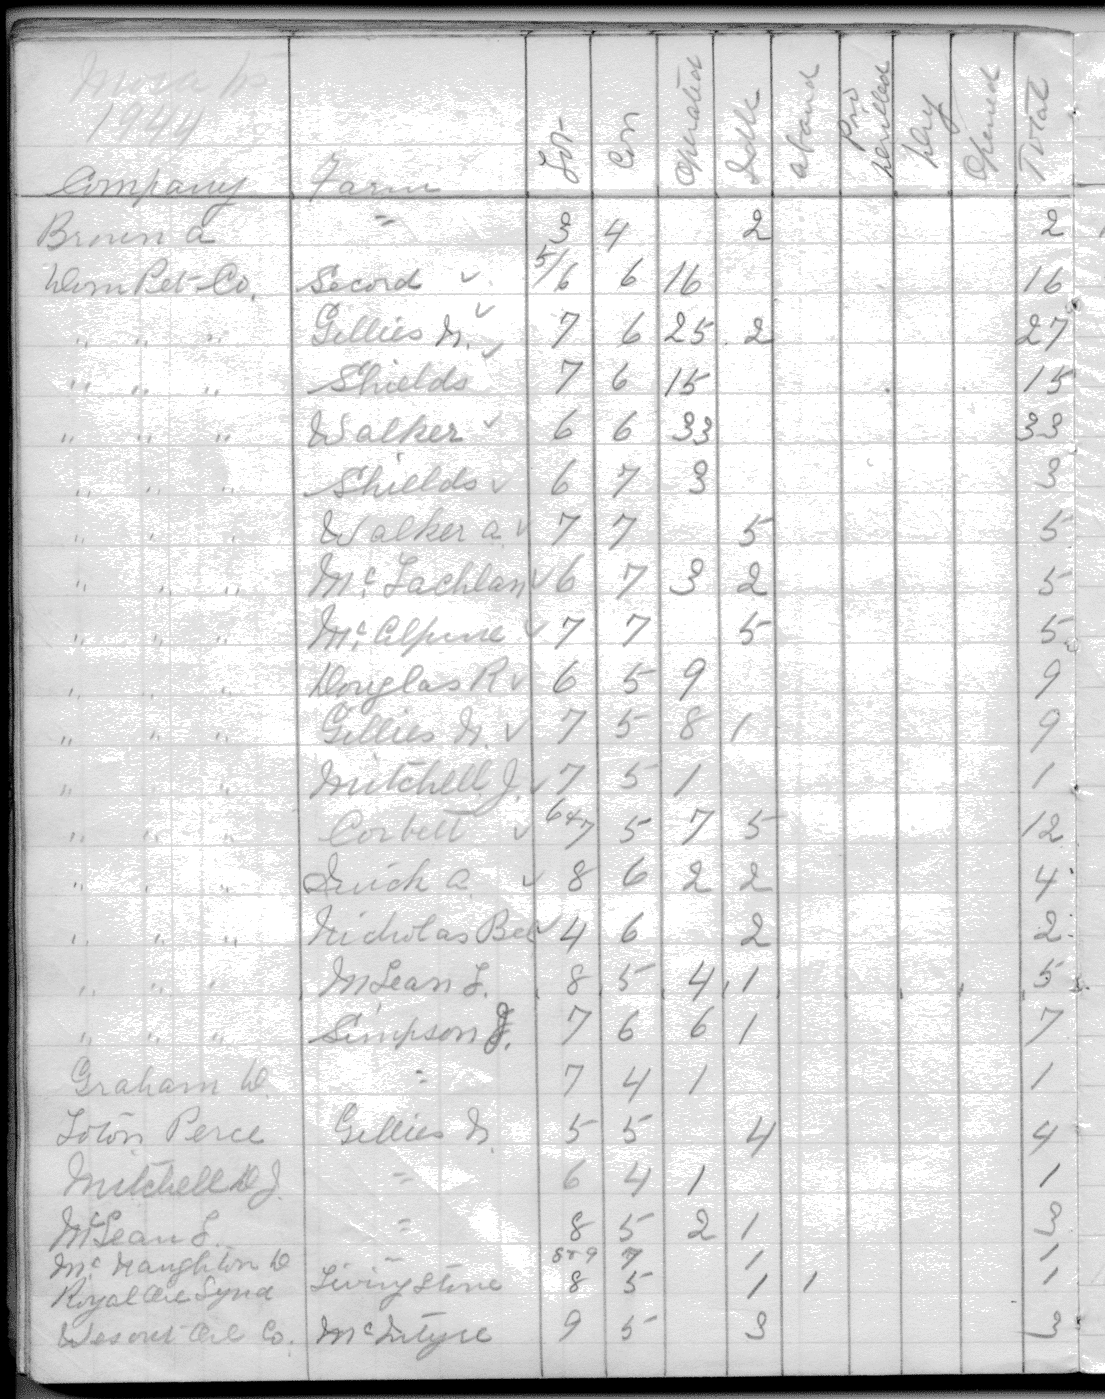 Mosa Tp
1944
Company Farm Lot Con Operated Idle aband Prod Drilled Dry Opened Total
Brown A " 3 4 2 2
Dom Pet Co. Secord ✓ 5/6 6 16 16
" " " Gillies N. ✓ 7 6 25 2 27
" " " Shields ✓ 7 6 15 15
" " " Walker ✓ 6 6 33 33
" " " Shields ✓ 6 7 3 3
" " " Walker A ✓ 7 7 5 5
" " " McLachlan ✓ 6 7 3 2 5
" " " McAlpine ✓ 7 7 5 5
" " " Douglas R ✓ 6 5 9 9
" " " Gillies N. ✓ 7 5 8 1 9
" " " Mitchell J. ✓ 7 5 1 1
" " " Corbett ✓ 6+7 5 7 5 12
" " " Quick A ✓ 8 6 2 2 4
" " " Nicholas ✓ 4 6 2 2
" " " McLean L. 8 5 4 1 5
" " " Simpson J. 7 6 6 1 7
Graham D. " 7 4 1 1
Loton Perce Gillies N. 5 5 4 4
Mitchell D J. " 6 4 1 1
McLean L. " 8 5 2 1 3
McNaughton D " 8+9 7 1 1
Royal Oil Synd Livingstone 8 5 1 1 1
Oil Co. McIntyre 9 5 3 3